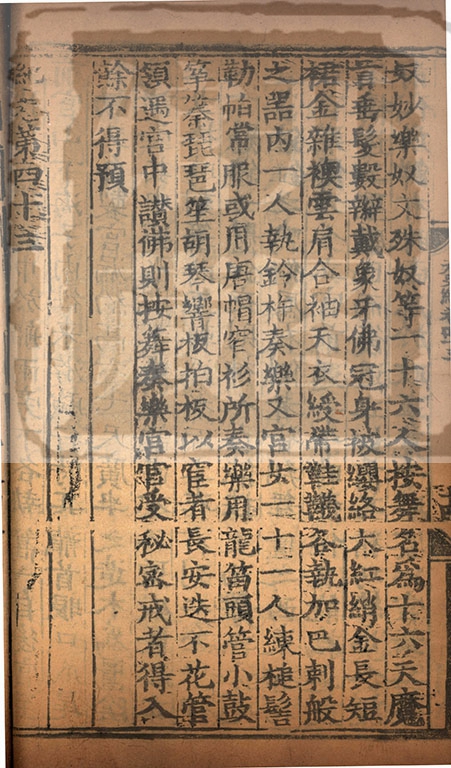 奴妙樂奴文殊奴等一十六人按舞名為十六天魔
首垂髮數辮戴象牙佛冠身被纓絡大紅綃金長短
裙金雜襖雲肩合袖天衣綬帶鞋襪各執加巴剌般
之器內一人執鈴杵奏樂又宮女一十一人練槌髻
勒帕常服或用唐帽窄衫所奏樂用龍笛頭管小鼓
箏𥱧琵琶笙胡琴響板拍板以宦者長安迭不花管
領遇宮中讃佛則按舞奏樂宮官受秘密戒者得入
餘不得預
紀卷第四十三